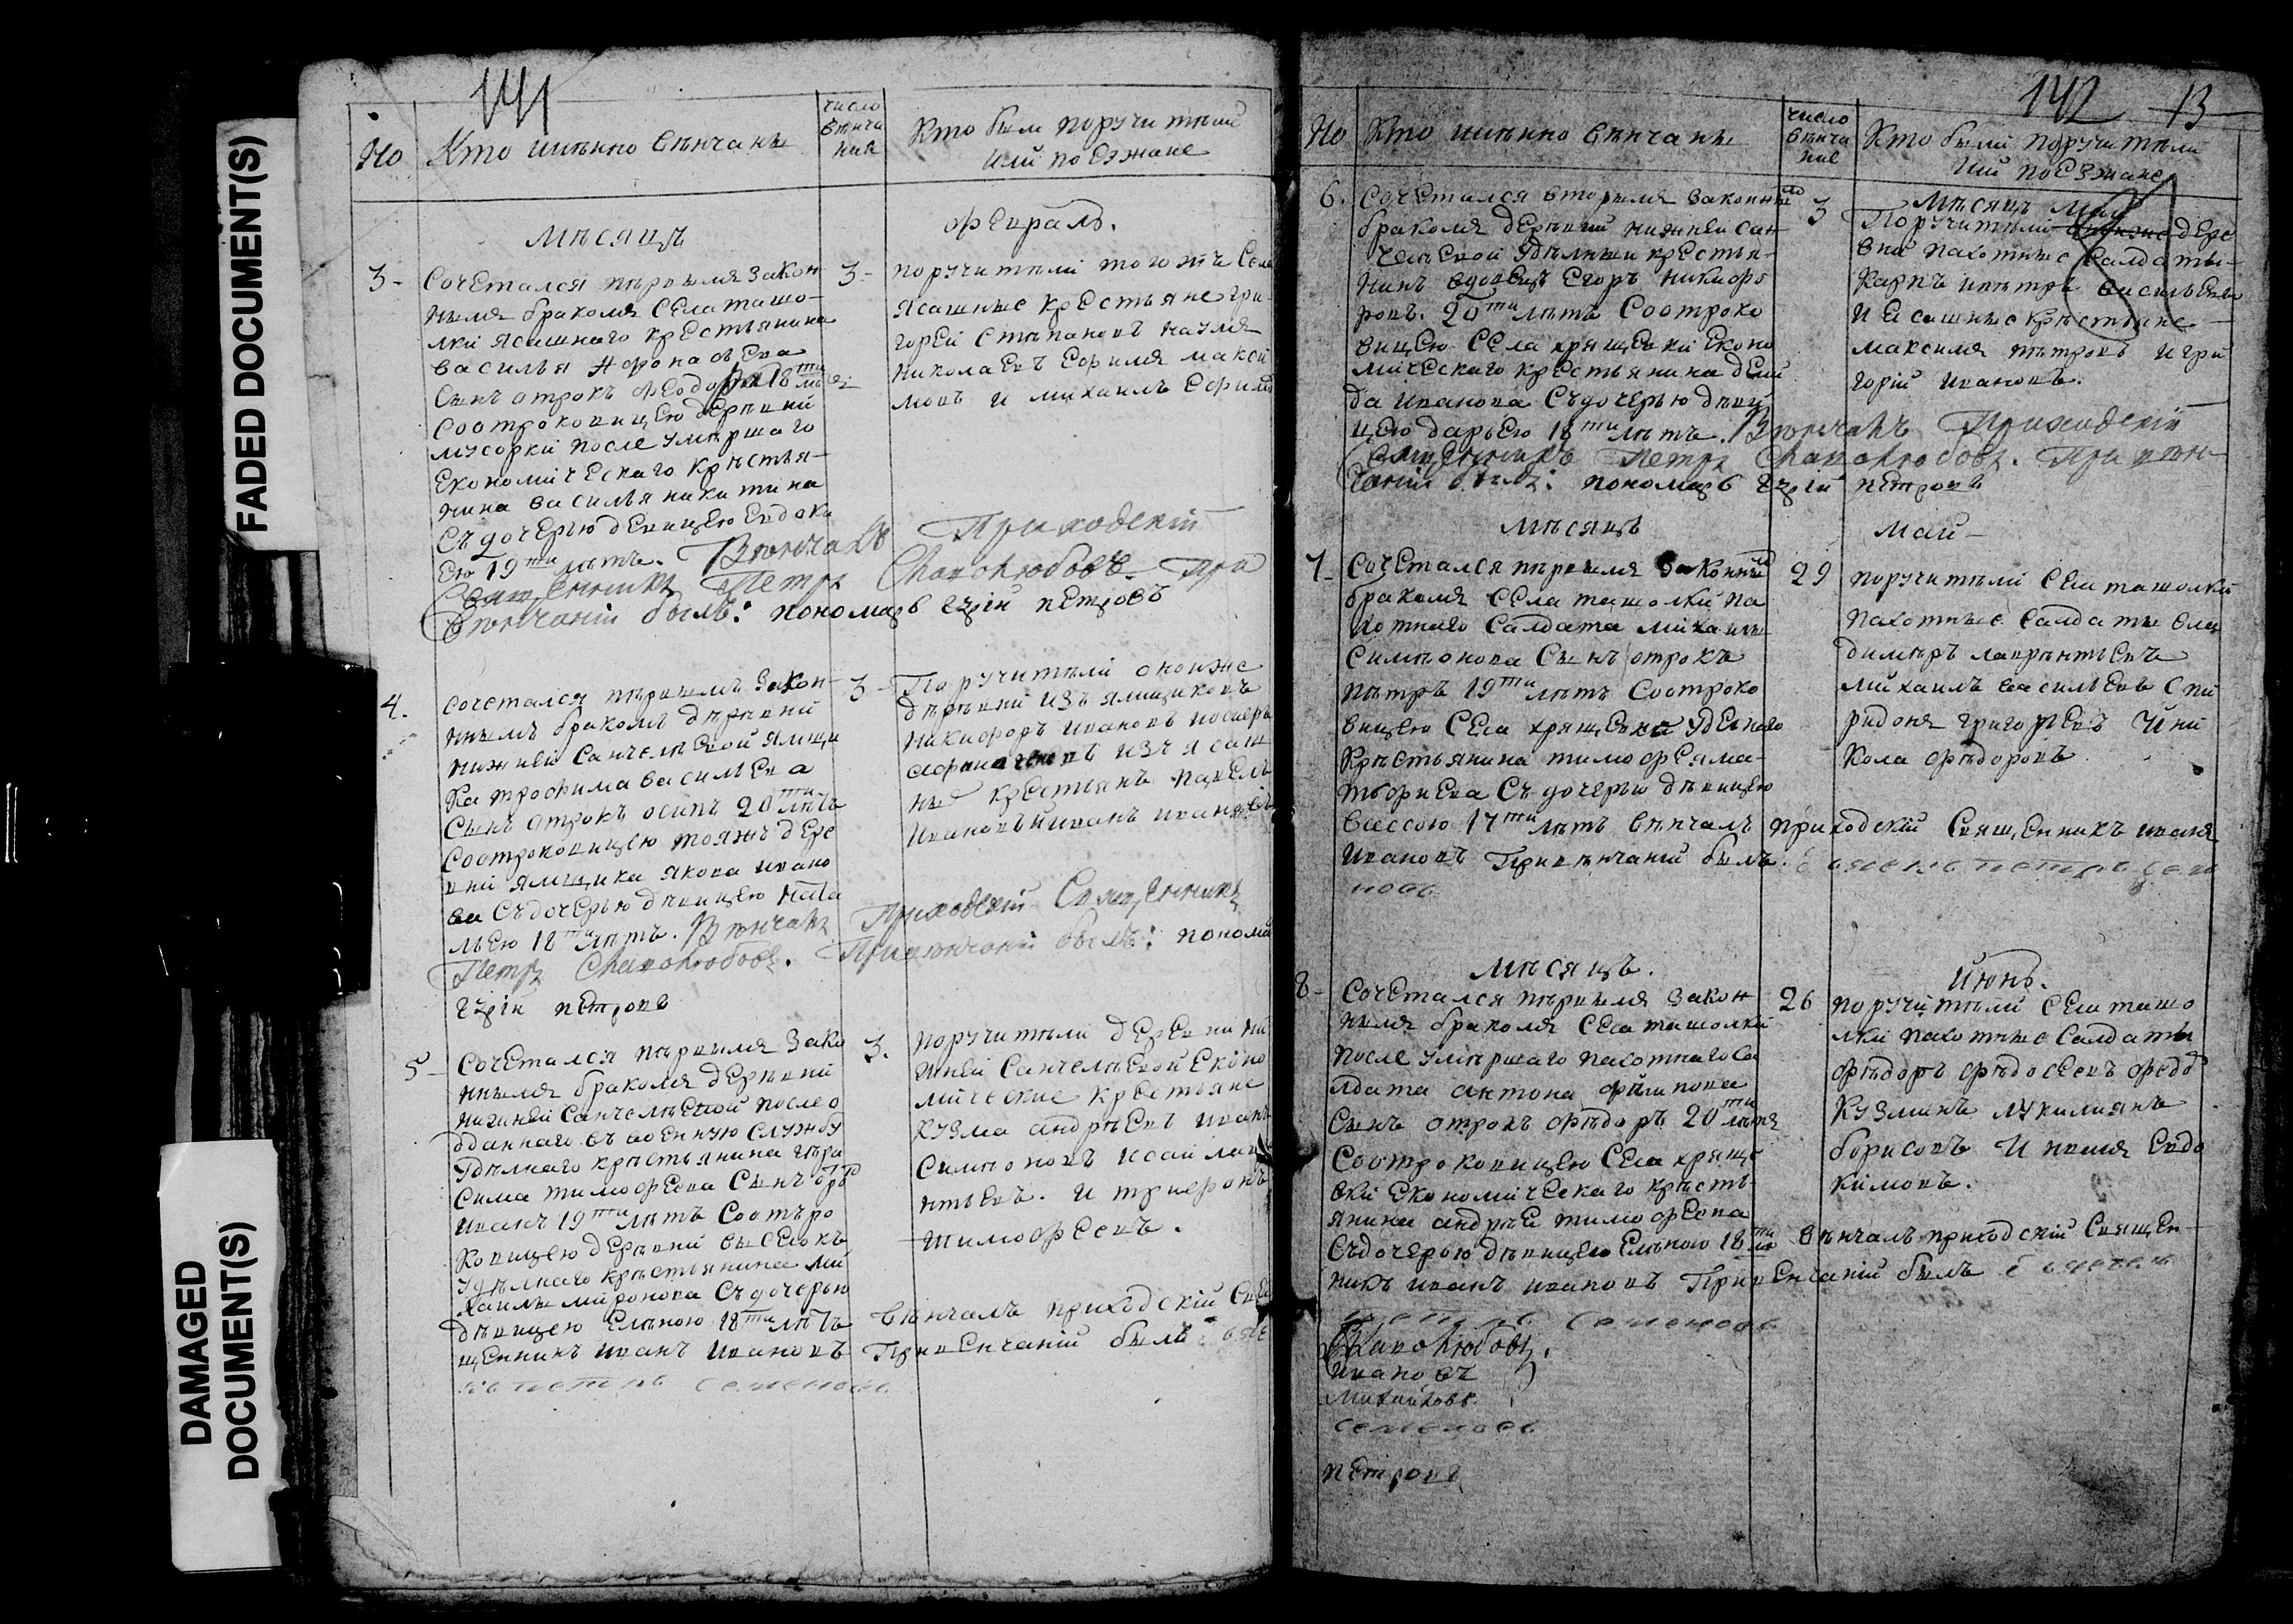 FADED DOCUMENT(S)
DAMAGED
DOCUMENT(S)
141
No
Кто имянно венчаны
число
венча
ния
Кто были поручители
или поезжане
Месяцъ
февраль.
3-
Сочетался первымъ закон
нымъ бракомъ села ташо-
лки ясашнаго крестьянина
василья Афонасьева
Сынъ отрокъ феодоръ 18ти летъ
Соотроковицею деревни
мусорки после умершаго
Економическаго крестья-
нина василья никитина
Съ дочерью девицею Евдоки
Ею 19ти летъ. Венчалъ Приходскій
Священникъ Петръ Славолюбовъ. При
Венчаніи былъ: пономарь петровъ
3-
поручители того жъ села
Ясашные крестьяне гри
горей степановъ наумъ
николаевъ Ефимъ макси
мовъ и михаилъ Ефимо
4.
Сочетался первымъ закон-
нымъ бракомъ деревни
нижней Санчелеевой ямщи
ка трофима васильева
Сынъ отрокъ осипъ 20ти летъ
Соотроковицею тояжъ дере
вни ямщика якова ивано
ва Съ дочерью девицею ната
льею 18ти летъ. Венчалъ Приходскій Священникъ
Петръ Славолюбовъ. При венчаніи былъ: понома
петровъ
3-
Поручители оноиже
деревни изъ ямщиковъ
никифоръ ивановъ
изъ ясаш
ныхъ крестьянъ павелъ
ивановъ и иванъ
5-
Сочетался первымъ зако
ннымъ бракомъ деревни
нижней Санчелеевой после о
тданнаго въ военную службу
Уделнаго крестьянина гера
сима тимофеева Сынъ
иванъ 19ти летъ Соотро
ковицею деревни выселокъ
уделнаго крестьянина ми
хаилы миронова Съ дочерью
девицею Еленою 18ти летъ венчалъ приходскій Свя
щенникъ иванъ ивановъ При венчаніи былъ
петръ семеновъ
3.
поручители деревни ни
жней Санчелеевой Еконо
мические крестьяне
кузма андреевъ иванъ
Симеоновъ исай лаве
нтьевъ. и трифонъ
тимофеевъ.
142 13
No
Кто имянно венчаны
число
венча
ние
Кто были поручители
или поезжане
Месяцъ май
6.
Сочетался вторымъ законны
бракомъ деревни нижней сан
челеевой Удельныи крестья-
нинъ вдовецъ Егоръ никифо
ровъ. 20ти летъ Соотроко
вицею Села хрящевки Еконо
мическаго крестьянина деми
да иванова Съ дочерью деви
цею дарьею 18ти летъ. Венчалъ Приходскій
Священникъ Петръ Славолюбовъ. При вен-
чаніи былъ: пономарь петровъ
3
Поручители дере
вни пахотные Салдаты-
карпъ и петръ васильевы
и ясашные крестьяне-
максимъ петровъ и гри
горій ивановъ.
Месяцъ
май-
7-
Сочетался первымъ законны
бракомъ села ташолки па
хотнаго Салдата михаилы
Симеонова Сынъ отрокъ
петръ 19ти летъ Соотроко
вицею Села хрящевка Уделнаго
крестьянина тимофея ма-
твориева Съ дочерью девицею
вассою 17ти летъ венчалъ приходскій Священникъ иванъ
ивановъ При венчаніи былъ. петръ семе
новъ
29
поручители Села ташолки
пахотные Салдаты вла
димеръ лаврентьевъ
михаилъ васильевъ Спи
ридонъ григорьевъ и ни
кола федоровъ
Месяцъ.
июнь.
8-
Сочетался первымъ закон
нымъ бракомъ Села ташолки
после умершаго пахотнаго Са
лдата антона филипова
Сынъ отрокъ федоръ 20ти летъ
Соотроковицею Села хряще
вки Економическаго кресть-
янина андрея тимофеева
Съ дочерью девицею Еленою 18ти венчалъ приходскій Священ-
никъ иванъ ивановъ При венчаніи былъ
петръ семеновъ
26
поручители Села ташо
лки пахотные Салдаты
федоръ федосеевъ федо
кузминъ лукиманъ
борисовъ и Евдо
кимовъ.
Славолюбовъ.
ивановъ
михайловъ
семеновъ
петровъ